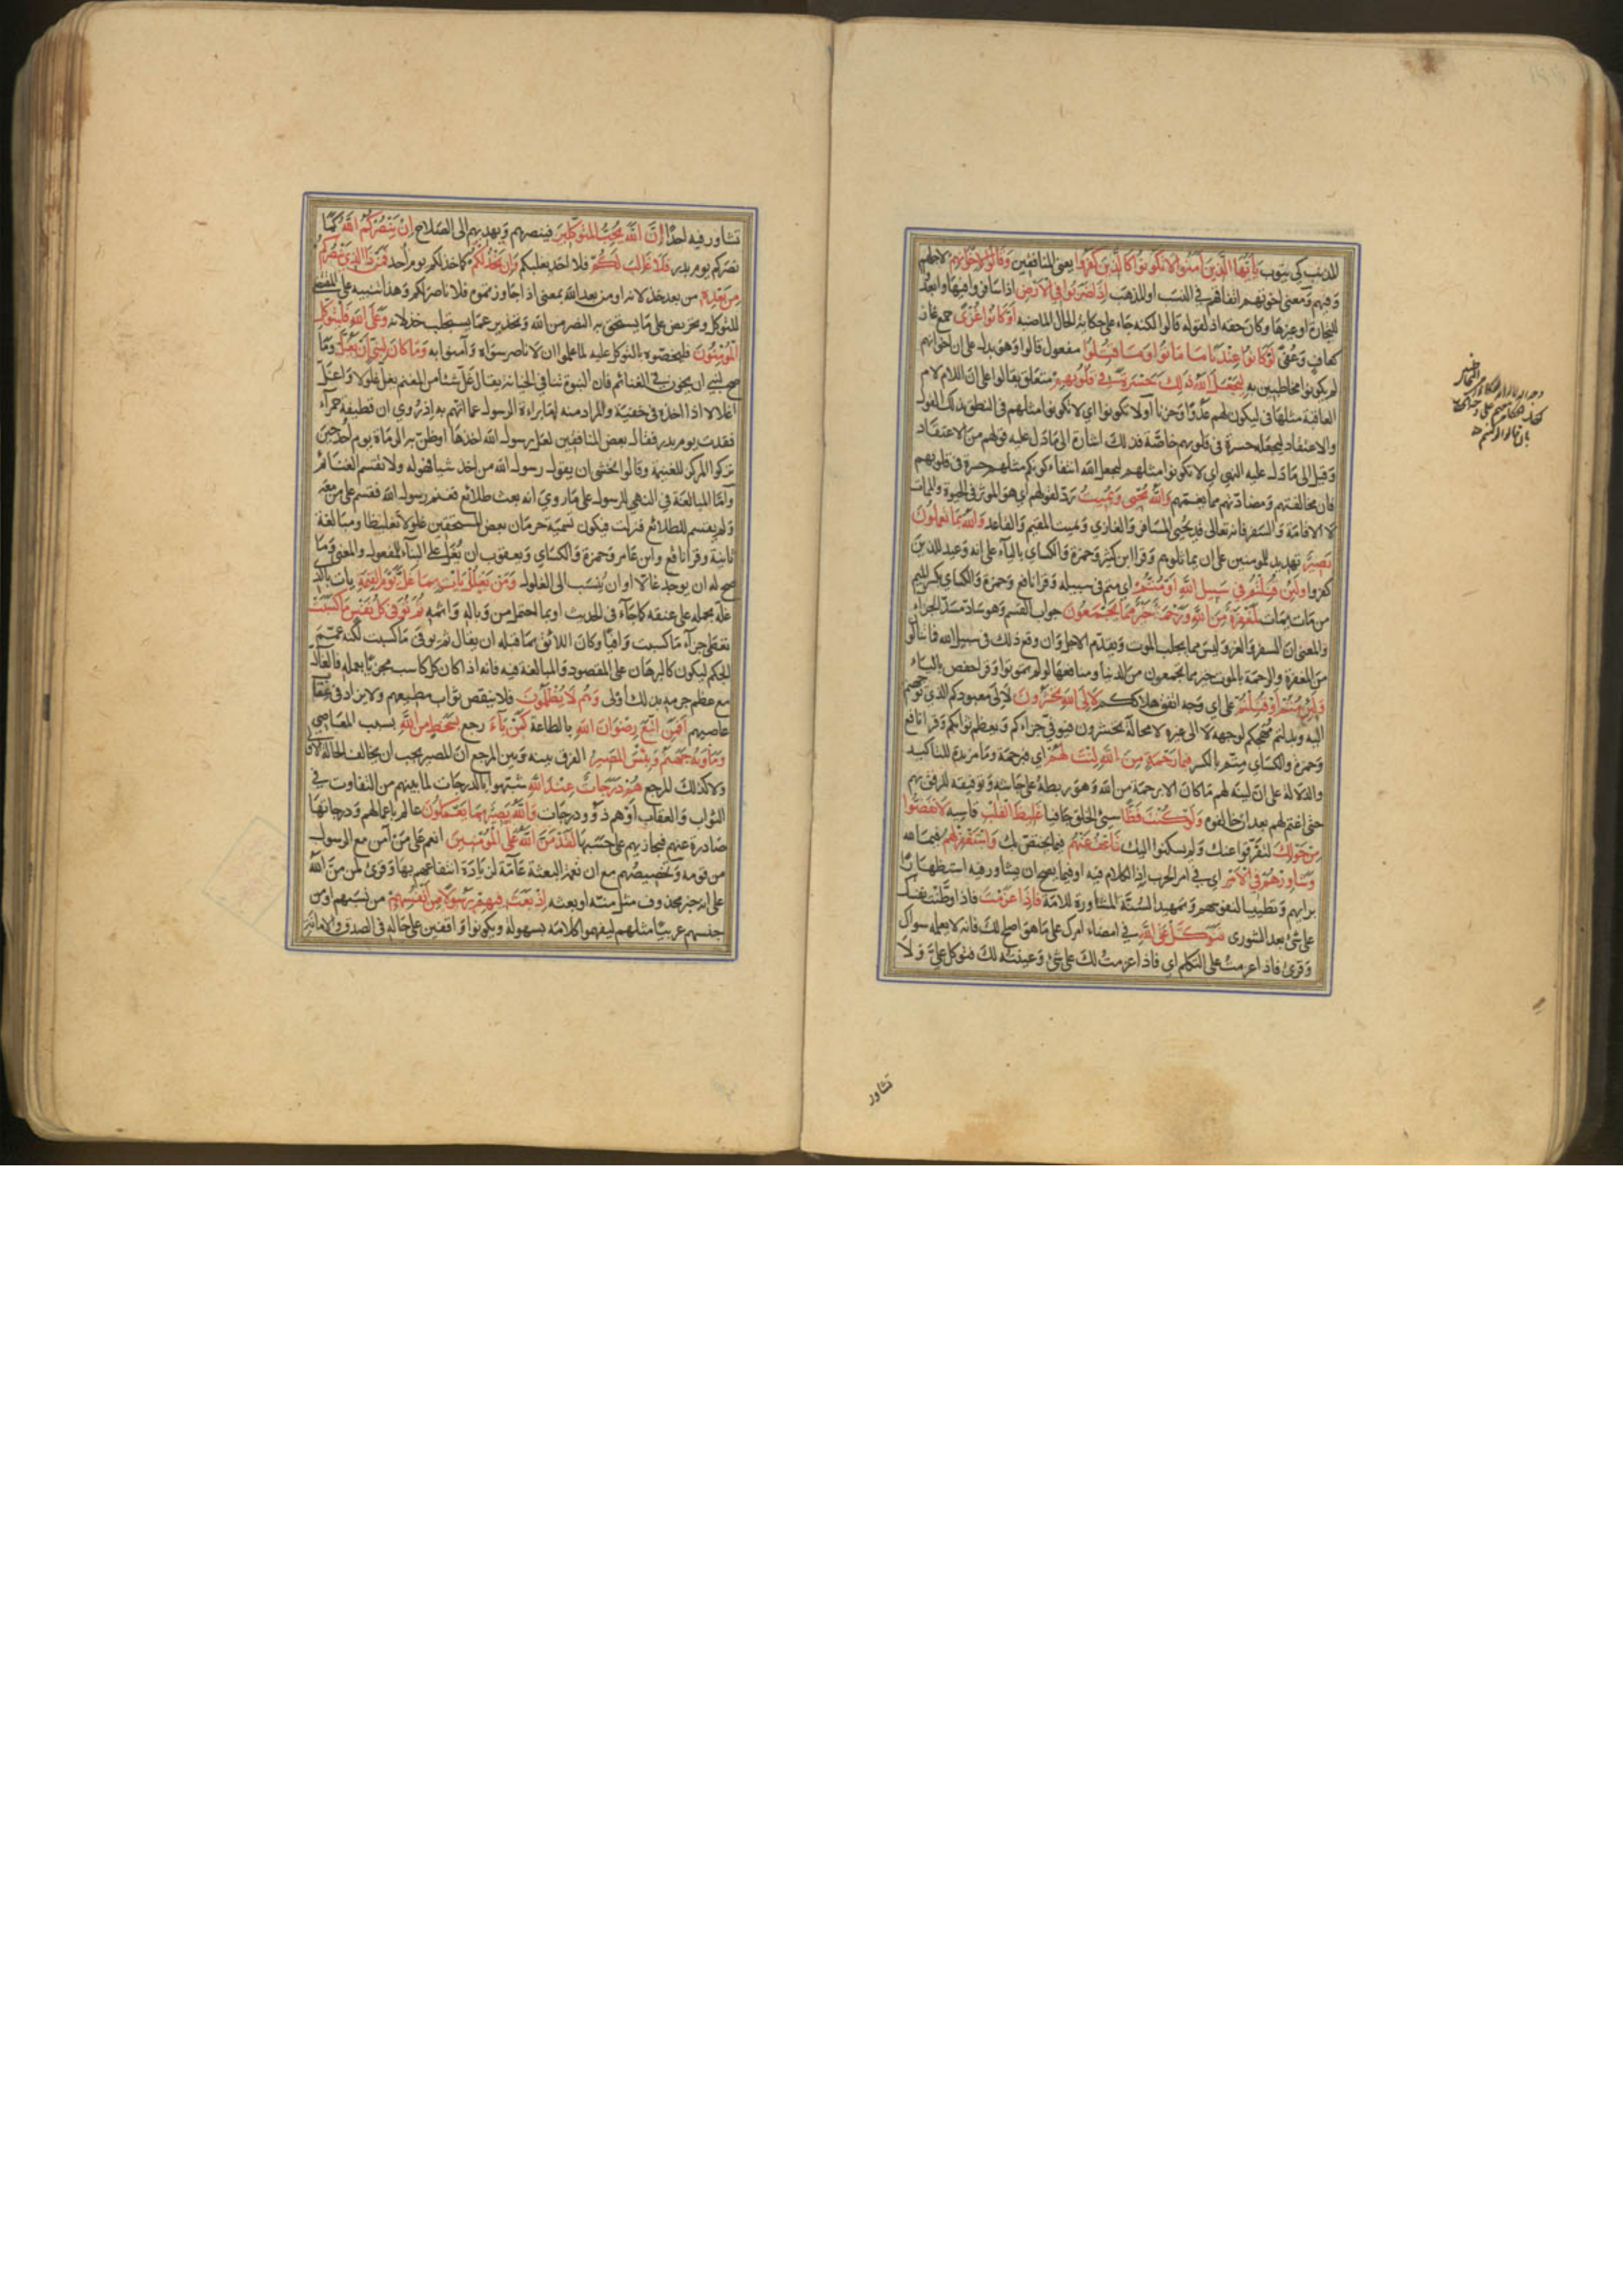 للمذنب كي يتوب يا أيها الذين آمنوا لا تكونوا كالذين كفروا يعني المنافقين وقالوا لإخوانهم لاجلهم
وفيهم ومعنى اخوتهم اتفاقهم في النسب او المذهب إذا ضربوا في الأرض اذا سافروا فيها وابعدوا
للتجارة او غيرها وكان حقه اذ لقوله قالوا لكنه جاء على حكاية الحال الماضية أو كانوا غزى جمع غاز
كعاف وعفى لو كانوا عندنا ما ماتوا وما قتلوا مفعول قالوا وهو يدل على ان اخوانهم
لم يكونوا مخاطبين به ليجعل الله ذلك حسرة في قلوبهم متعلق بقالوا على ان اللام لام
العاقبة مثلها في ليكون لهم عدوا وحزنا او لا تكونوا اي لا تكونوا مثلهم في النطق بذلك القول
والاعتقاد ليجعله حسرة في قلوبهم خاصة فذلك اشارة الى ما دل عليه قولهم من الاعتقاد
وقيل الى ما دل عليه النهي اي لا تكونوا مثلهم ليجعل الله انتفاء كونكم مثلهم حسرة في قلوبهم
فان مخالفتهم ومضادتهم مما يغمهم والله يحيي ويميت رد لقولهم اي هو المؤثر في الحيوة والممات
لا الاقامة والسفر فانه تعالى قد يحيي المسافر والغازي ويميت المقيم والقاعد والله بما تعملون
بصير تهديد للمومنين على ان يماثلوهم وقرا ابن كثير وحمزة والكساي بالياء على انه وعيد للذين
كفروا ولئن قتلتم في سبيل الله أو متم اي متم في سبيله وقرا نافع وحمزة والكساي بكسر الميم
من مات يمات لمغفرة من الله ورحمة خير مما يجمعون جواب القسم وهو ساد مسد الجزاء
والمعنى ان السفر والغزو ليس مما يجلب الموت ويقدم الاجل وان وقع ذلك في سبيل الله فما تنالون
من المغفرة والرحمة بالموت خير مما تجمعون من الدنيا ومنافعها لو لم تموتوا وقرا حفص بالياء
ولئن متم أو قتلتم على اي وجه اتفق هلاككم لإلى الله تحشرون لالى معبودكم الذي توجهتم
اليه وبذلتم مهجكم لوجهه لا الى غيره لا محالة تحشرون فيوفي جزاءكم ويعظم ثوابكم وقرا نافع
وحمزة والكساي متم بالكسر فبما رحمة من الله لنت لهم اي فبرحمة وما مزيدة للتاكيد
والدلالة على ان لينه لهم ما كان الا برحمة من الله وهو ربطه على جاشه وتوفيقه للرفق بهم
حتى اغتم لهم بعد ان خالفوه ولو كنت فظا سيئ الخلق جافيا غليظ القلب قاسيه لانفضوا
من حولك لتفرقوا عنك ولم يسكنوا اليك فاعف عنهم فيما يختص بك واستغفر لهم فيما لله
وشاورهم في الأمر اي في امر الحرب اذ الكلام فيه او فيما يصح ان يشاور فيه استظهارا
برايهم وتطييبا لنفوسهم وتمهيدا لسنة المشاورة للامة فإذا عزمت فاذا وطنت نفسك
على شيء بعد الشورى فتوكل على الله في امضاء امرك على ما هو اصلح لك فانه لا يعلمه سواه
وقرئ فاذا عزمت على التكلم اي فاذا عزمت لك على شيء وعينته لك فتوكل علي ولا
تشاور
تشاور فيه احدا إن الله يحب المتوكلين فينصرهم ويهديهم الى الصلاح إن ينصركم الله كما
نصركم يوم بدر فلا غالب لكم فلا احد يغلبكم وإن يخذلكم كما خذلكم يوم احد فمن ذا الذي ينصركم
من بعده من بعد خذلانه او من بعد الله بمعنى اذا جاوزتموه فلا ناصر لكم وهذا تنبيه على المقتضي
للتوكل وتحريض على ما يستحق به النصر من الله وتحذير عما يستجلب خذلانه وعلى الله فليتوكل
المؤمنون فليخصوه بالتوكل عليه لما علموا ان لا ناصر سواه وآمنوا به وما كان لنبي أن يغل وما
صح لنبي ان يخون في الغنائم فان النبوة تنافي الخيانة يقال غل شيئا من المغنم يغل غلولا واغل
اغلالا اذا اخذه في خفية والمراد منه اما براءة الرسول عما اتهم به اذ روي ان قطيفة حمراء
فقدت يوم بدر فقال بعض المنافقين لعل رسول الله اخذها او ظن به الرماة يوم احد حين
تركوا المركز للغنيمة وقالوا نخشى ان يقول رسول الله من اخذ شيئا فهو له ولا تقسم الغنائم
واما المبالغة في النهي للرسول على ما روي انه بعث طلائع فغنم رسول الله فقسم على من معه
ولم يقسم للطلائع فنزلت فيكون تسمية حرمان بعض المستحقين غلولا تغليظا ومبالغة
ثانية وقرا نافع وابن عامر وحمزة والكساي ويعقوب ان يغل على البناء للمفعول والمعنى وما
صح له ان يوجد غالا او ان ينسب الى الغلول ومن يغلل يأت بما غل يوم القيمة يات بالذي
غله يحمله على عنقه كما جاء في الحديث او بما احتمل من وباله واثمه ثم توفى كل نفس ما كسبت
تعطى جزاء ما كسبت وافيا وكان اللائق بما قبله ان يقال ثم يوفى ما كسبت لكنه عمم
الحكم ليكون كالبرهان على المقصود والمبالغة فيه فانه اذا كان كل كاسب مجزيا بعمله فالغال
مع عظم جرمه بذلك اولى وهم لا يظلمون فلا ينقص ثواب مطيعهم ولا يزاد في عقاب
عاصيهم أفمن اتبع رضوان الله بالطاعة كمن باء رجع بسخط من الله بسبب المعاصي
ومأويه جهنم وبئس المصير الفرق بينه وبين المرجع ان المصير يجب ان يخالف الحالة الاولى
ولا كذلك المرجع هم درجات عند الله شبهوا بالدرجات لما بينهم من التفاوت في
الثواب والعقاب او هم ذوو درجات والله بصير بما يعملون عالم باعمالهم ودرجاتها
صادرة عنهم فيجازيهم على حسبها لقد من الله على المؤمنين انعم على من آمن مع الرسول
من قومه وتخصيصهم مع ان نعمة البعثة عامة لزيادة انتفاعهم بها وقرئ لمن من الله
على انه خبر محذوف مثل منه او بعثه إذ بعث فيهم رسولا من أنفسهم من نسبهم او من
جنسهم عربيا مثلهم ليفهموا كلامه بسهولة ويكونوا واقفين على حاله في الصدق والامانة